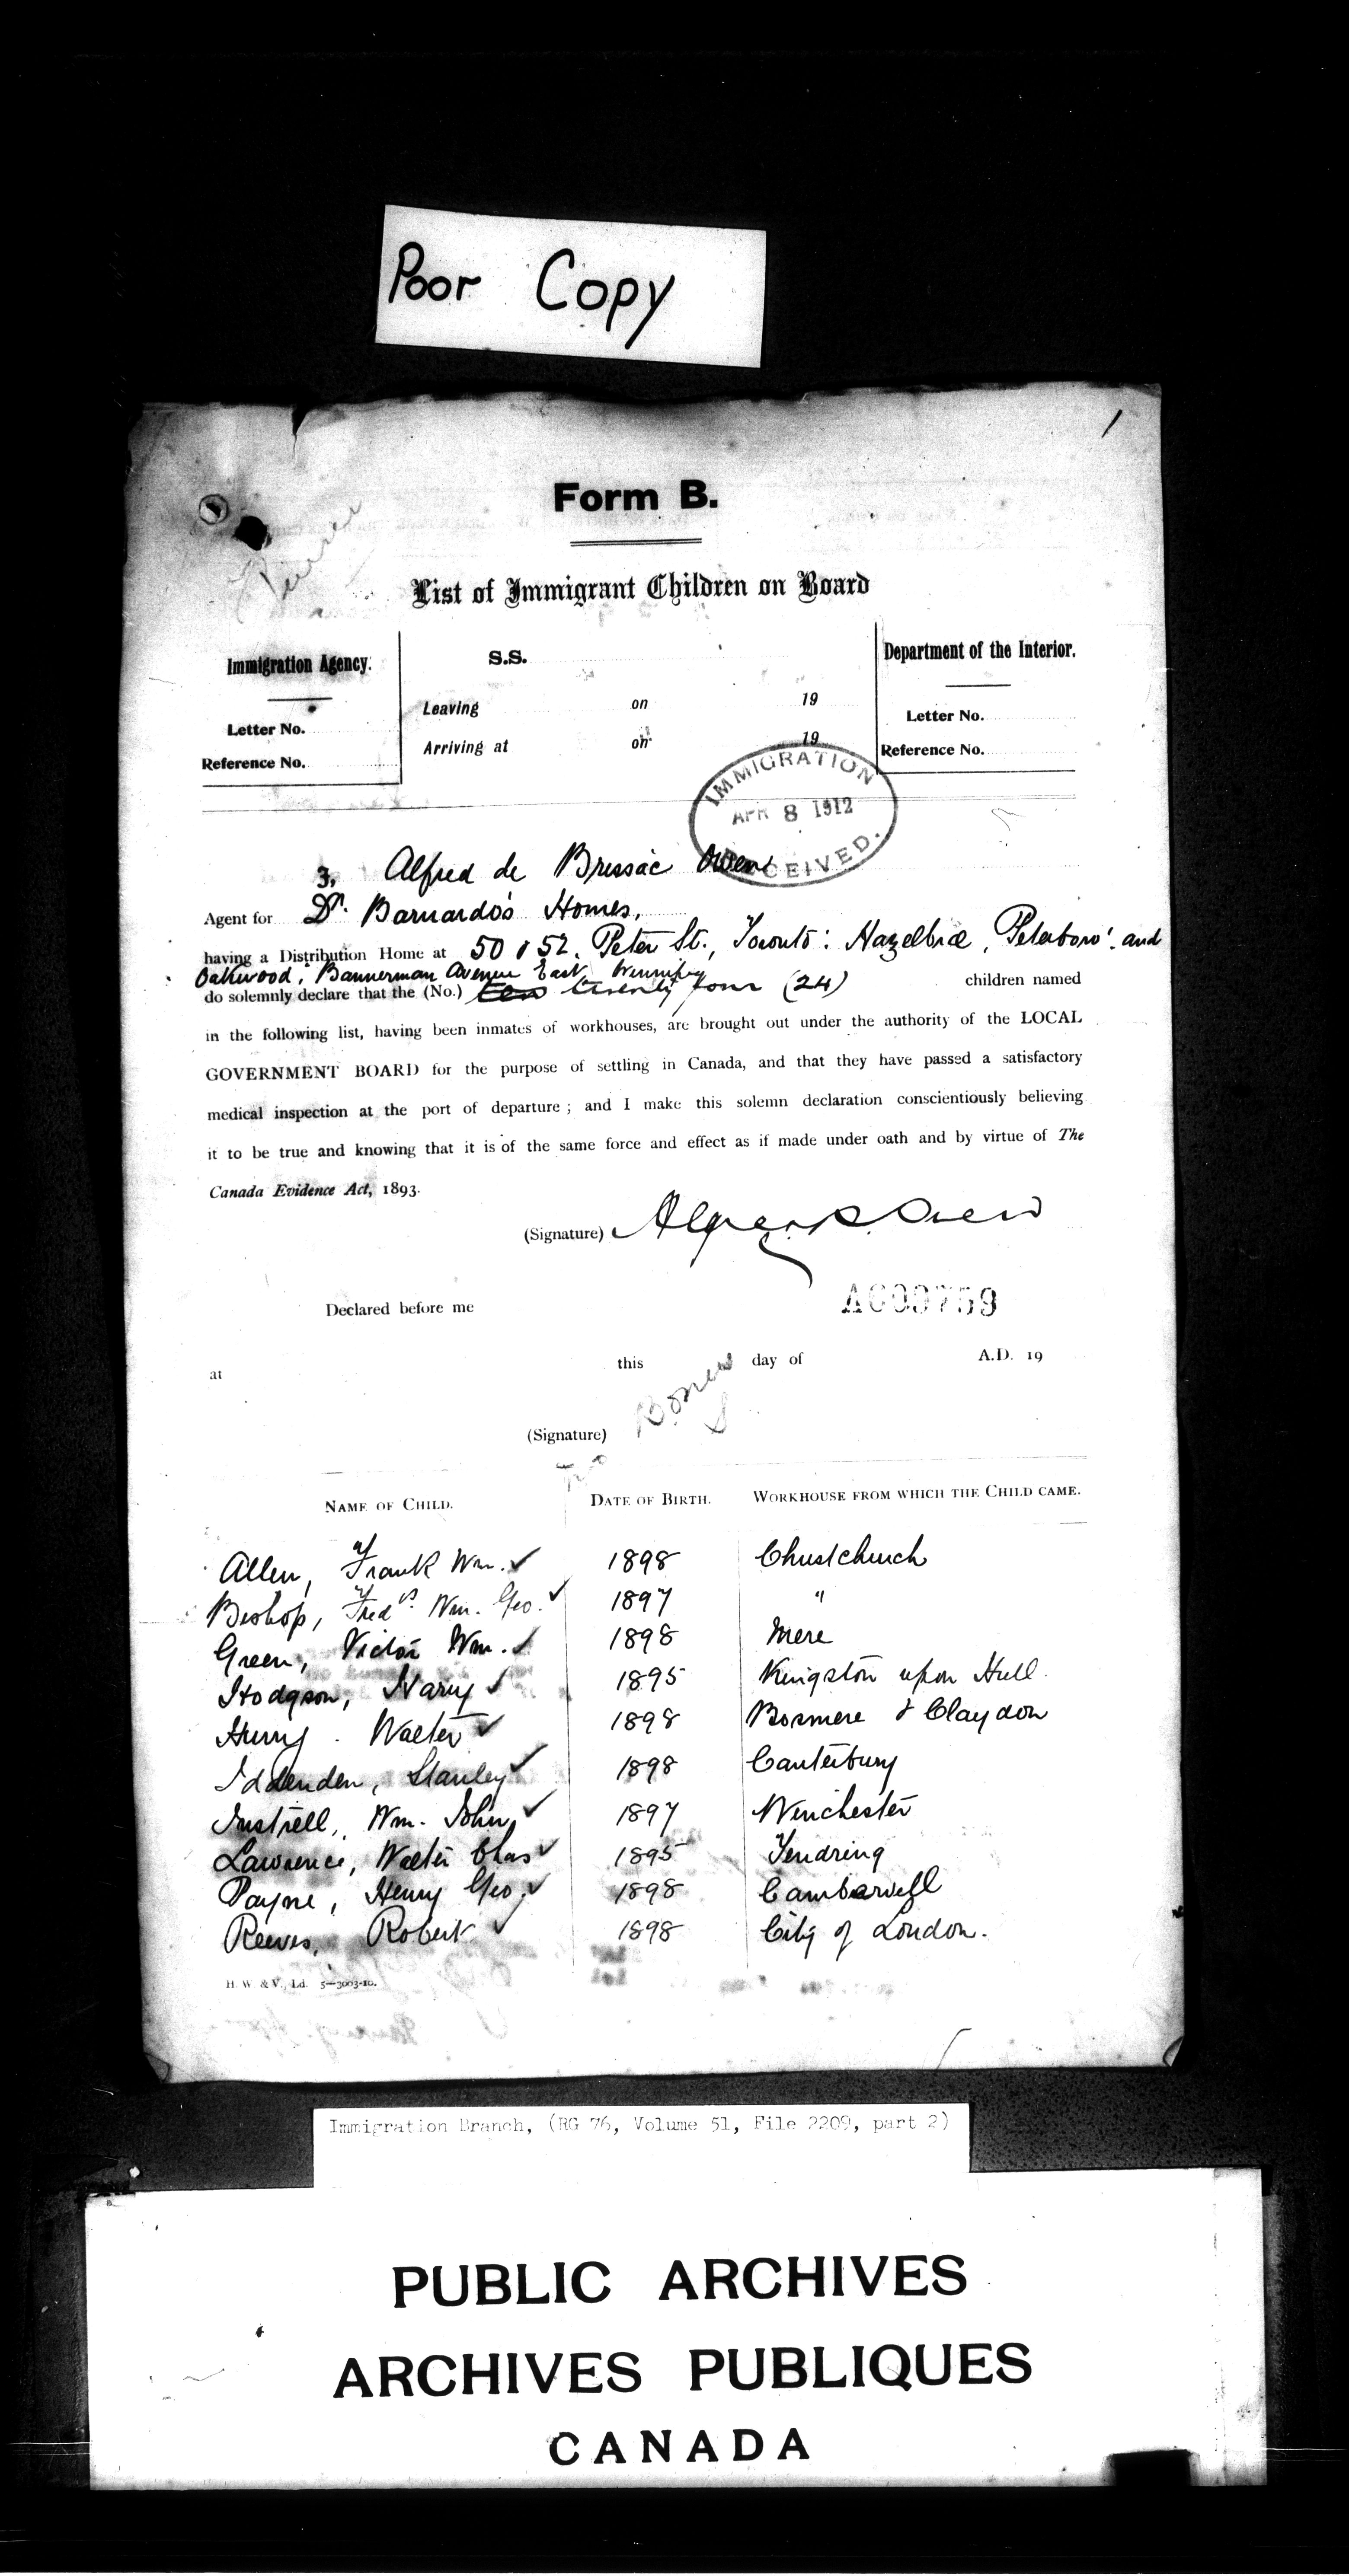 Poor Copy
1
Form B.
List of Immigrant Children on Board
Immigration Agency.
Letter No.
Reference No.
S.S.
Leaving on 19
Arriving at on 19
Department of the Interior.
Letter No.
Reference No.
IMMIGRATION
APR 8 1912
RECEIVED.
I, Alfred de Bressac Owen
Agent for Dr. Barnardo's Homes,
having a Distribution Home at 50 & 52. Peter St., Toronto: Hazelbrae, Peterboro': and
Oakwood, Bannerman Avenue East, Winnipeg
do solemnly declare that the (No.) twenty four (24) children named
in the following list, having been inmates of workhouses, are brought out under the authority of the LOCAL
GOVERNMENT BOARD for the purpose of settling in Canada, and that they have passed a satisfactory
medical inspection at the port of departure ; and I make this solemn declaration conscientiously believing
it to be true and knowing that it is of the same force and effect as if made under oath and by virtue of The
Canada Evidence Act, 1893.
(Signature) Alfred B. Owen
Declared before me
A009759
at this day of A.D. 19
(Signature)
NAME OF CHILD. DATE OF BIRTH. WORKHOUSE FROM WHICH THE CHILD CAME.
Allen, Frank Wm. ✓ 1898 Christchurch
Bishop, Fredk. Wm. Geo. ✓ 1897 "
Green, Victor Wm. ✓ 1898 Mere
Hodgson, Harry ✓ 1895 Kingston upon Hull.
Hurry. Walter ✓ 1898 Bosmere & Claydon
Iddenden, Stanley ✓ 1898 Canterbury
Instrell, Wm. John, ✓ 1897 Winchester
Lawrence, Walter Chas ✓ 1895 Tendring
Payne, Henry Geo. ✓ 1898 Camberwell
Reeves, Robert ✓ 1898 City of London.
H. W. & V., Ld. 5—3003-10.
Immigration Branch, (RG 76, Volume 51, File 2209, part 2)
PUBLIC ARCHIVES
ARCHIVES PUBLIQUES
CANADA